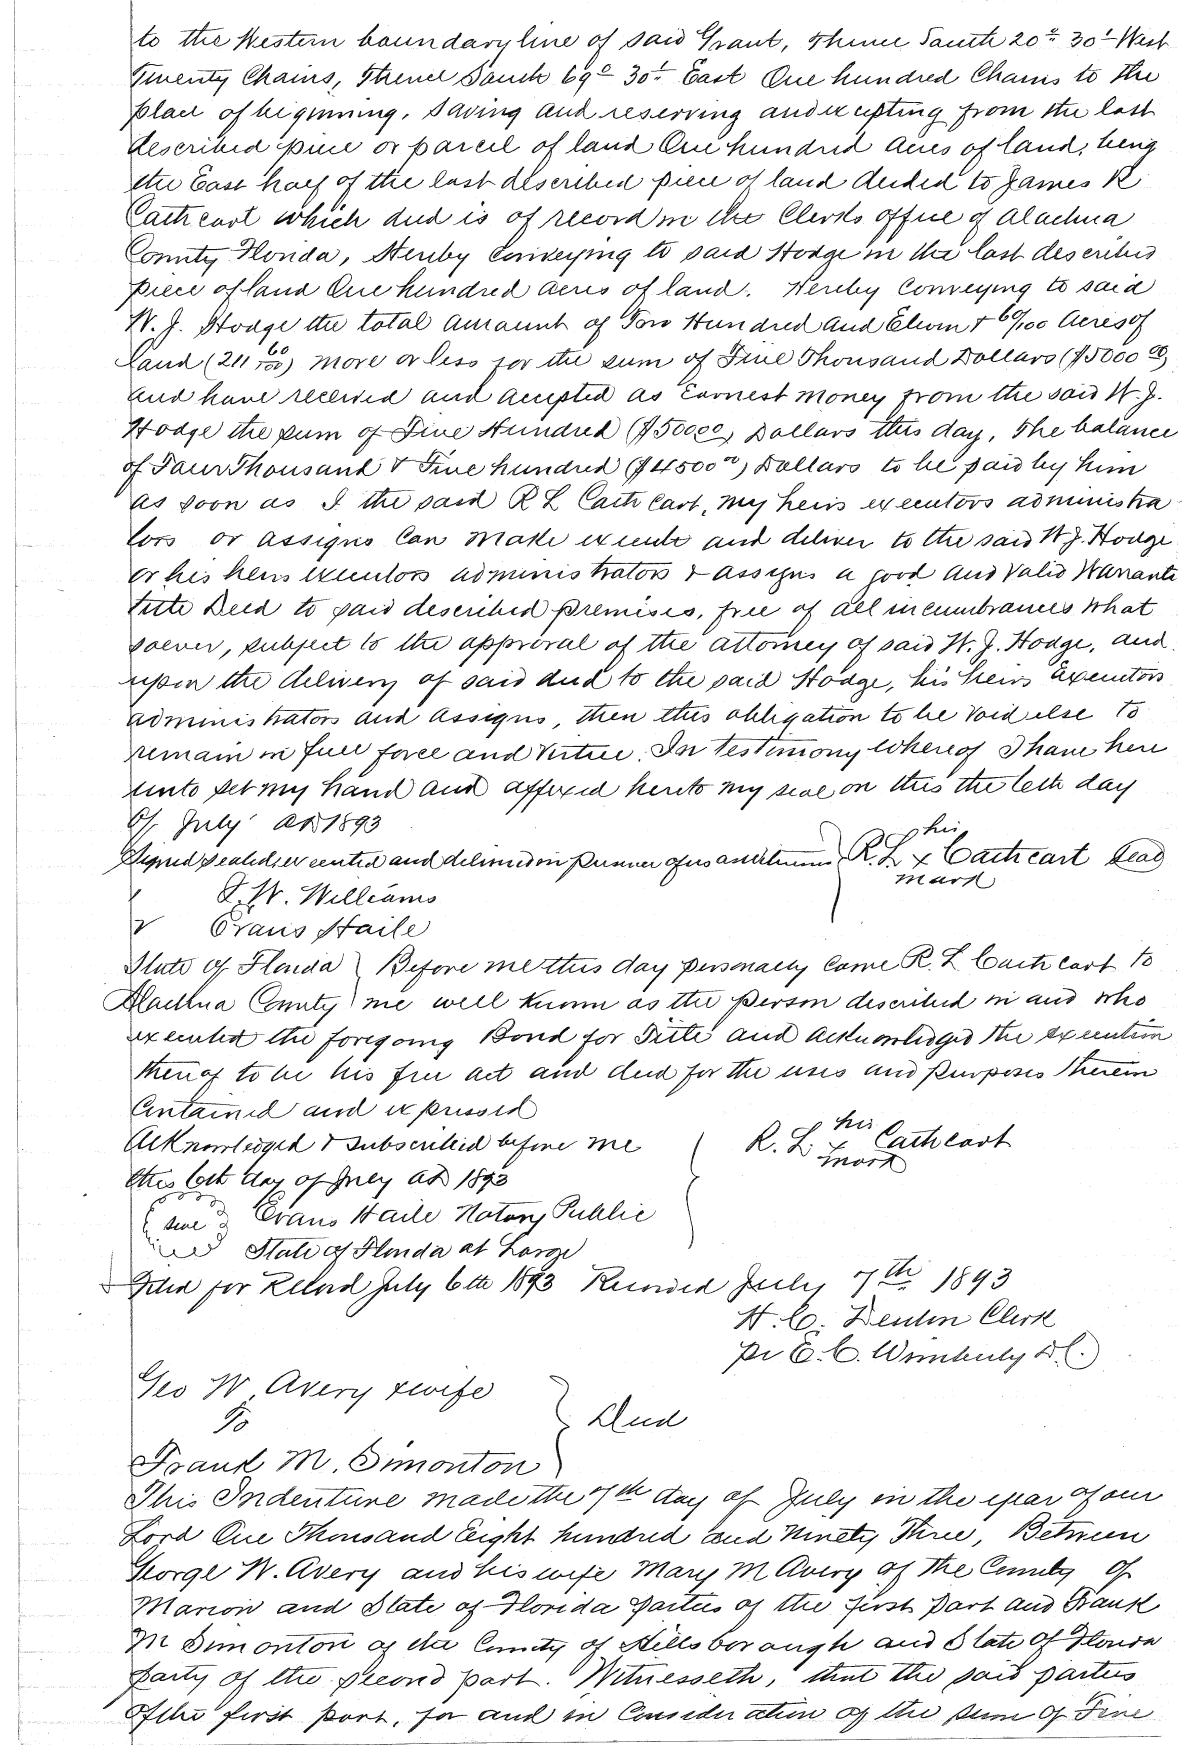 to the Western boundary line of said Grant, Thence South 20° 30' West
Twenty Chains, Thence South 69° 30' East One hundred Chains to the
place of beginning. Saving and reserving and excepting from the last
described piece or parcel of land One hundred acres of land, being
the East half of the last described piece of land deeded to James K
Cathcart which deed is of record in the Clerks office of Alachua
County Florida, Hereby Conveying to said Hodge in the last described
piece of land One hundred acres of land. Hereby Conveying to said
W. J. Hodge the total amount of Two Hundred and Eleven + 60/100 Acres of
land (211 60/100) more or less for the sum of Five Thousand Dollars ($5000 00)
and have received and accepted as Earnest money from the said W. J.
Hodge the sum of Five Hundred ($500 00) Dollars this day, The balance
of Four Thousand & Five hundred ($4500 00) Dollars to be paid by him
as soon as I the said R L Cathcart, my heirs executors administra
tors or assigns Can make execute and deliver to the said W. J. Hodge
or his heirs executors administrators & assigns a good and valid Warrante
title Deed to said described premises, free of all incumbrances what
soever, subject to the approval of the attorney of said W. J. Hodge, and
upon the delivery of said deed to the said Hodge, his heirs Executors
administrators and assigns, then this obligation to be void else to
remain in full force and virtue. In testimony Whereof I have here
unto set my hand and affixed hereto my seal on this the 6th day
of July AD 1893
Signed sealed executed and delivered in presence of us as witnesses } R. L. his x mark Cathcart Seal
W. Williams
& Evans Haile
State of Florida } Before me this day personally came R. L Cathcart to
Alachua County } me well known as the person described in and who
executed the foregoing Bond for Title and acknowledged the execution
thereof to be his free act and deed for the uses and purposes therein
Contained and expressed
Acknowledged & subscribed before me
R. L. his x mark Cathcart
this 6th day of July AD 1893
seal Evans Haile Notary Public
State of Florida at Large
Filed for Record July 6th 1893 Recorded July 7th 1893
H. C. Denton Clerk
pr E. C. Wimberly D.C.
Geo W. Avery & wife
To } Deed
Frank M. Simonton
This Indenture made the 7th day of July in the year of our
Lord One Thousand Eight hundred and Ninety Three, Between
George W. Avery and his wife Mary M Avery of the County of
Marion and State of Florida parties of the first part and Frank
M Simonton of the County of Hillsborough and State of Florida
party of the second part. Witnesseth, that the said parties
of the first part, for and in Consideration of the sum of Five